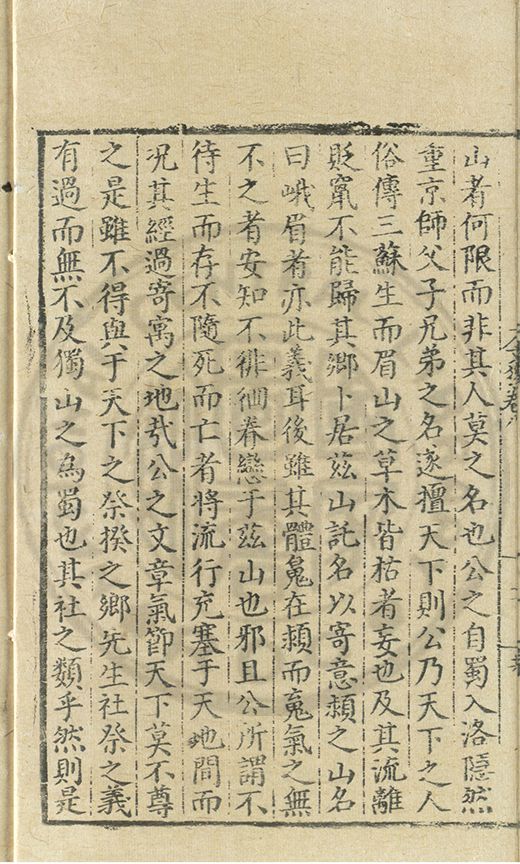 山者何限而非其人莫之名也公之自蜀入洛隱然
重京師父子兄弟之名遂擅天下則公乃天下之人
俗傳三蘇生而眉山之草木皆枯者妄也及其流離
貶竄不能歸其鄉卜居茲山託名以寄意潁之山名
曰峨眉者亦此義耳後雖其體魄在潁而䰟氣之無
不之者安知不徘徊眷戀于茲山也邪且公所謂不
待生而存不隨死而亡者將流行充塞于天地間而
况其經過寄寓之地㢤公之文章氣節天下莫不尊
之是雖不得與于天下之祭揆之鄉先生社祭之義
有過而無不及獨山之為蜀也其社之類乎然則是